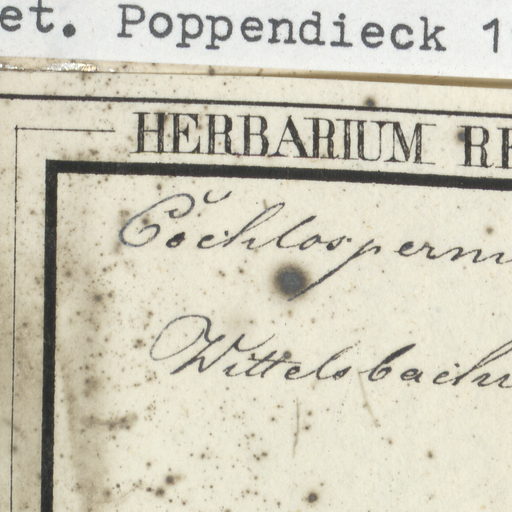 et. Poppendieck 1
HERBARIUM RE
Cochlosperm
Wittelsbach